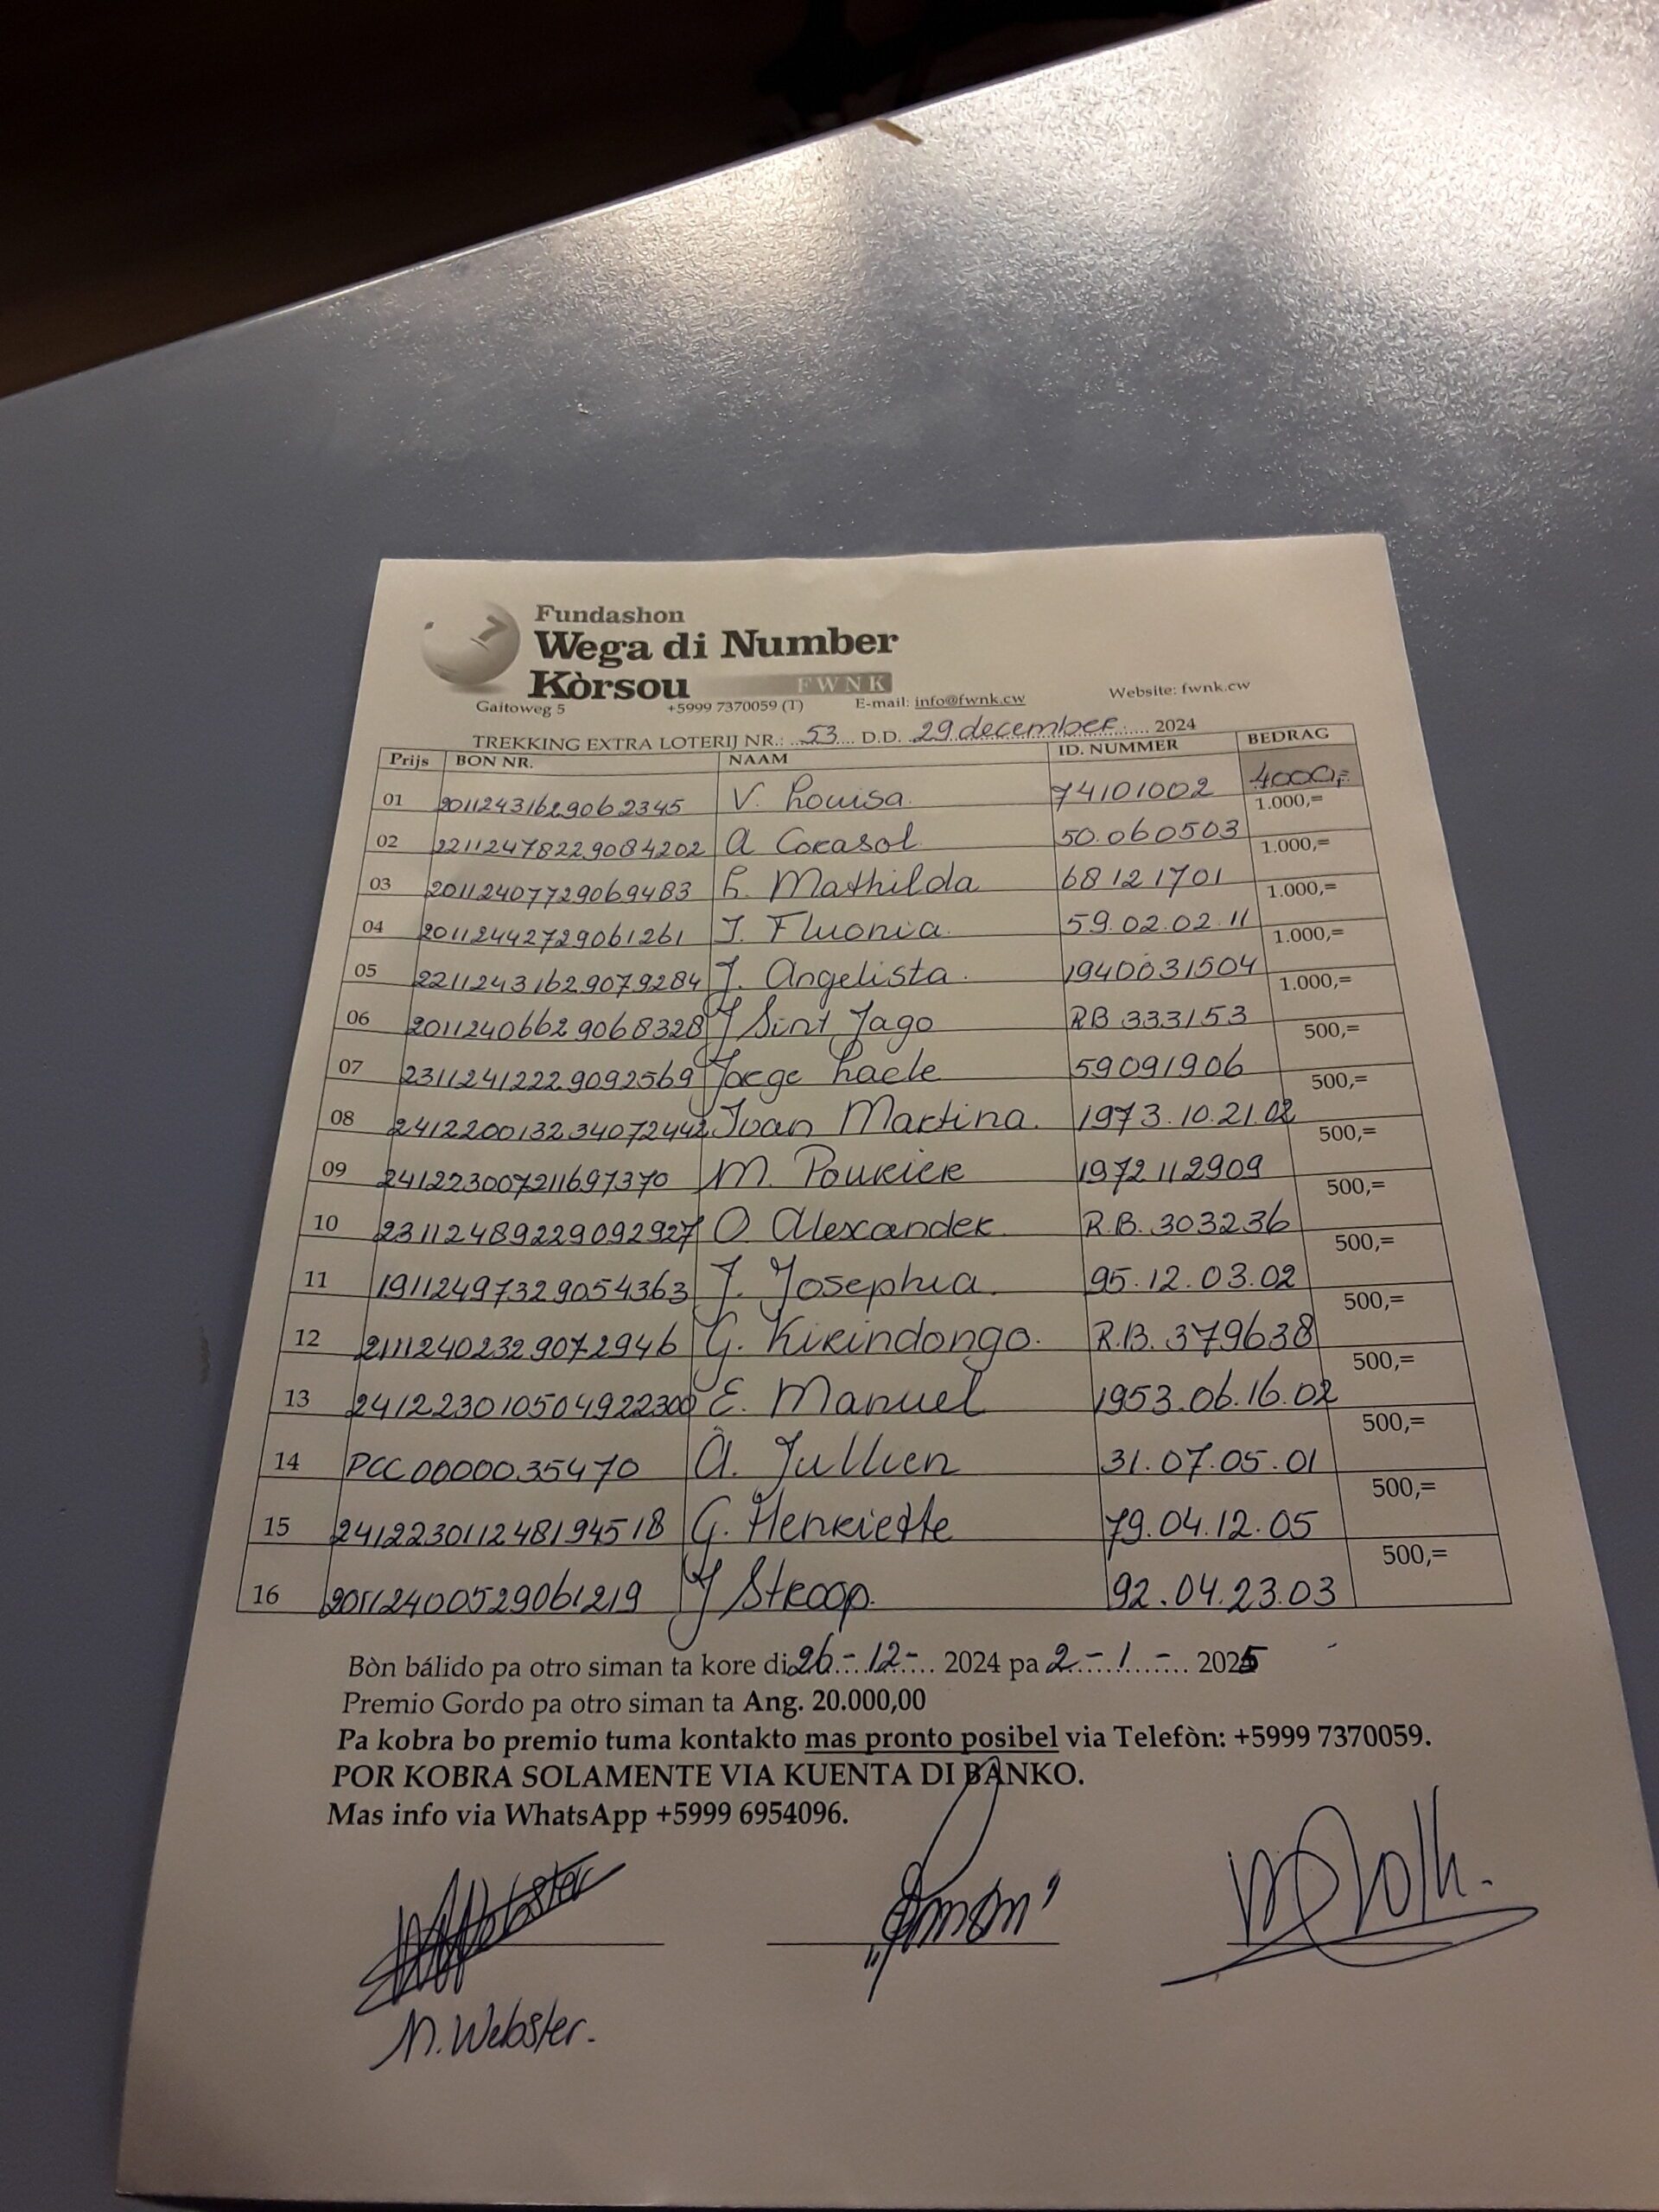 Fundashon
Wega di Number
Kòrsou FWNK
Gaitoweg 5 +5999 7370059 (T) E-mail: info@fwnk.cw Website: fwnk.cw
TREKKING EXTRA LOTERIJ NR.: 53 D.D. 29 december 2024
Prijs BON NR. NAAM ID. NUMMER BEDRAG
01 20112431629062345 V. Louisa. 74101002 4000,=
1.000,=
02 22112478229084202 A Corasol 50.060503
1.000,=
03 20112407729069483 L. Mathilda 68121701
1.000,=
04 20112442729061261 J. Fluonia. 59.02.02.11
1.000,=
05 22112431629079284 J. Angelista. 1940031504
1.000,=
06 20112406629068328 J Sint Jago RB 333153
500,=
07 23112412229092569 Jorge Laele 59091906
500,=
08 241220013234072442 Ivan Martina. 1973.10.21.02
500,=
09 241223007211697370 M. Pourier 1972112909
500,=
10 23112489229092927 O Alexander. R.B. 303236
500,=
11 19112497329054363 J. Josephia. 95.12.03.02
500,=
12 2111240232907 2946 G. Kirindongo. R.B. 379638
500,=
13 241223010504922300 E. Manuel 1953.06.16.02
500,=
14 PCC0000035470 A. Jullien 31.07.05.01
500,=
15 241223011248194518 G. Henriette 79.04.12.05
500,=
16 2011240052906 1219 J Stroop. 92.04.23.03
Bòn bálido pa otro siman ta kore di 26-12- 2024 pa 2-1- 2025
Premio Gordo pa otro siman ta Ang. 20.000,00
Pa kobra bo premio tuma kontakto mas pronto posibel via Telefòn: +5999 7370059.
POR KOBRA SOLAMENTE VIA KUENTA DI BANKO.
Mas info via WhatsApp +5999 6954096.
N. Webster.